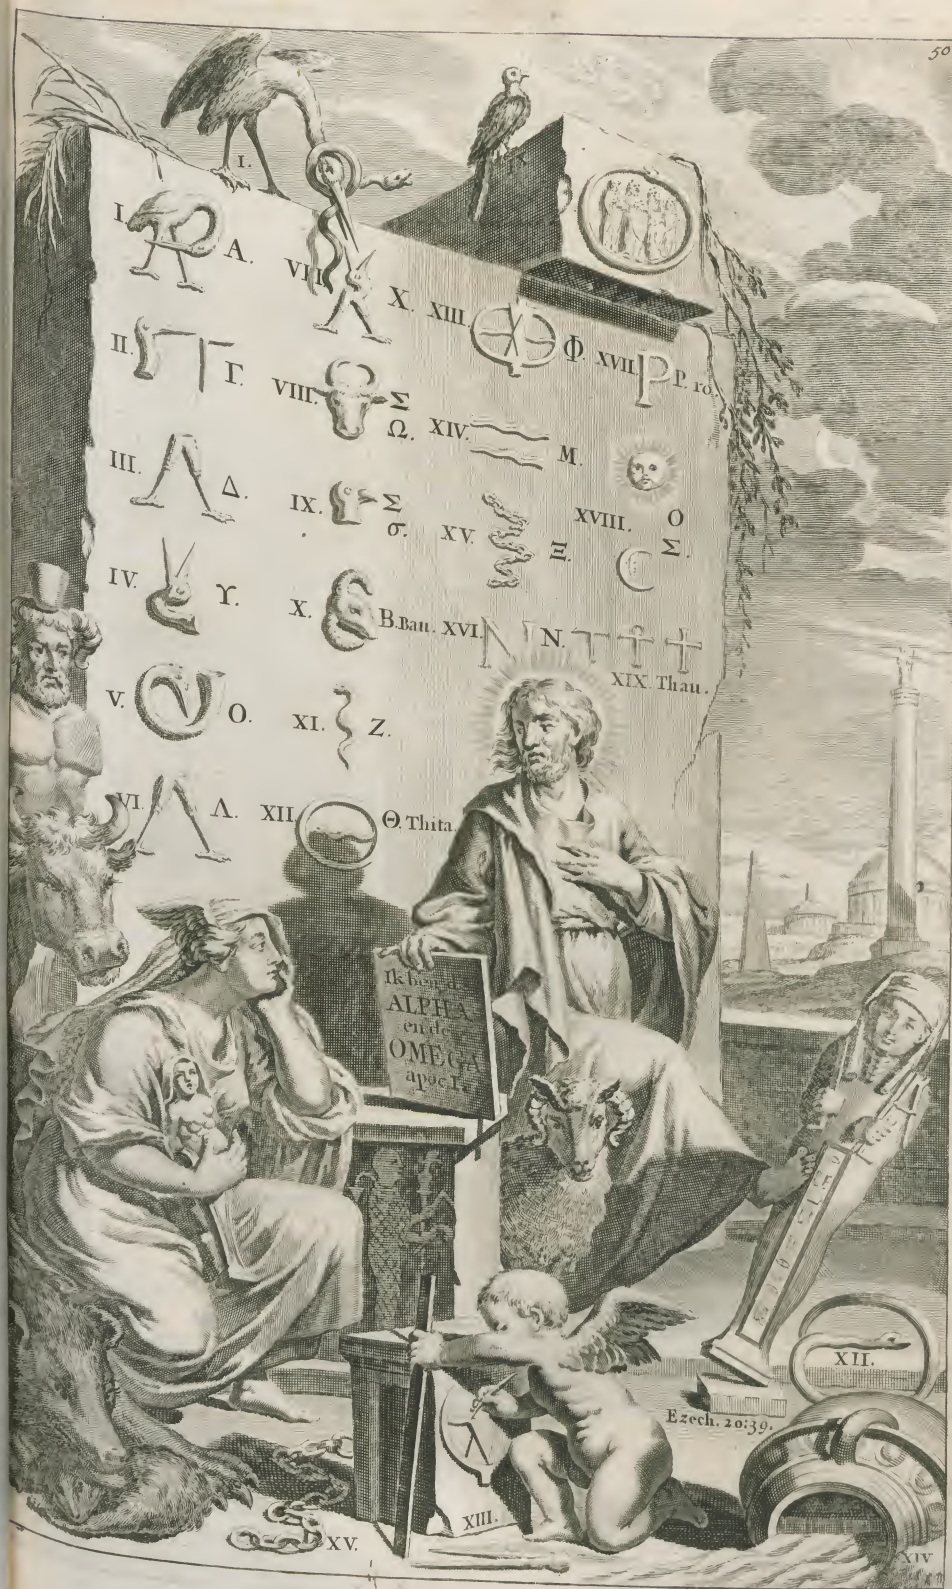 50
I.
IX
I. A.
II. Γ.
III. Δ.
IV. ϒ.
V. O.
VI. Λ.
VII. X.
VIII. Σ
Ω.
IX. Σ
σ.
X. B. Bau.
XI. Z.
XII. Θ. Thita.
XIII. Φ.
XIV. M.
XV. Ξ.
XVI. N.
XVII. P. ro.
XVIII. O
Σ.
XIX. Thau.
Ik ben de
ALPHA
en de
OMEGA
apoc. I.
XII.
Ezech. 20:39.
XIII.
XV.
XIV